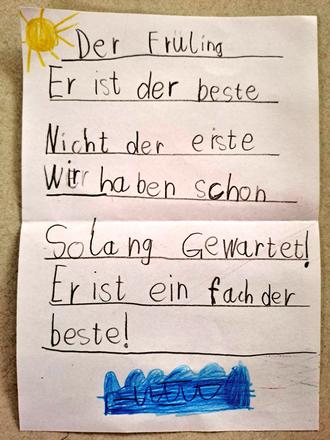 Der Früling
Er ist der beste
Nicht der erste
Wir haben schon
Solang Gewartet!
Er ist ein fach der
beste!